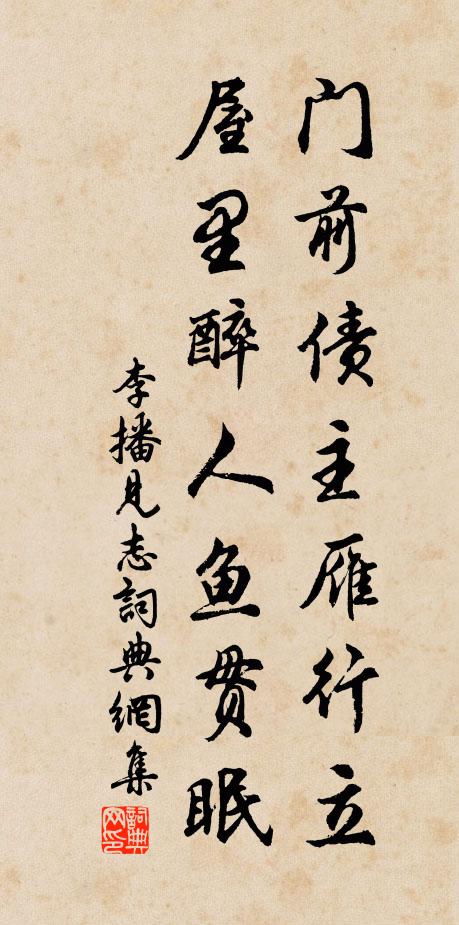 门前债主雁行立
屋里醉人鱼贯眠
李播见志詞典網集
詞典网印